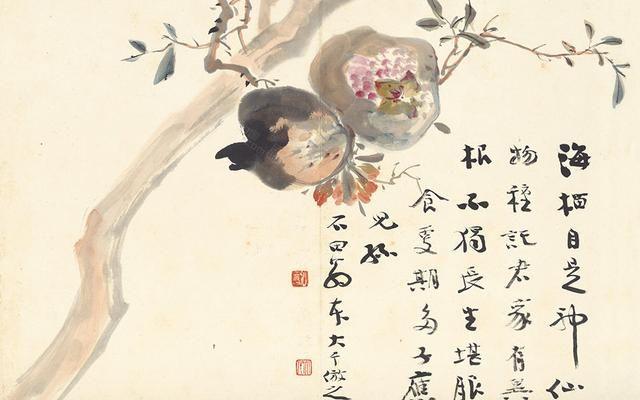 海榴自是神仙
物種託君家有異
根不獨長生堪服
食更期多子應
兒孫
石田翁本大千倣之